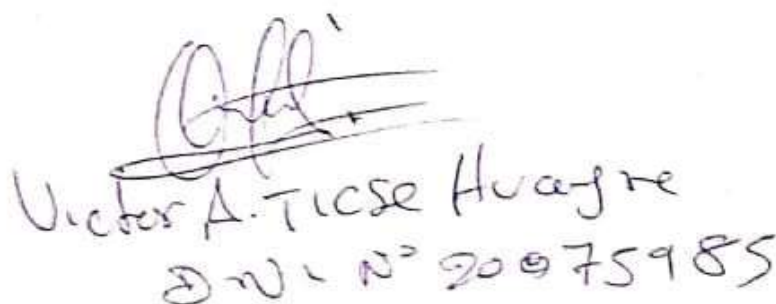 Victor A. Ticse Huayre
D.N.I. Nº 20075985